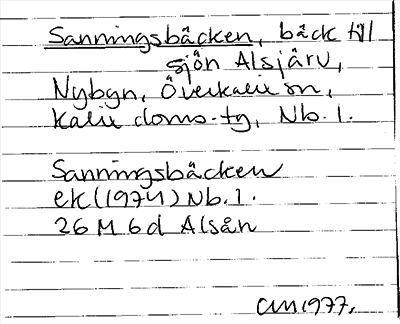 Sanningsbäcken, bäck till
sjön Alsjärv,
Nybyn, Överkalix sn,
Kalix doms. tg, Nb. l.
Sanningsbäcken
ek (1974) Nb. l.
26 M 6d Alsån
AM 1977.